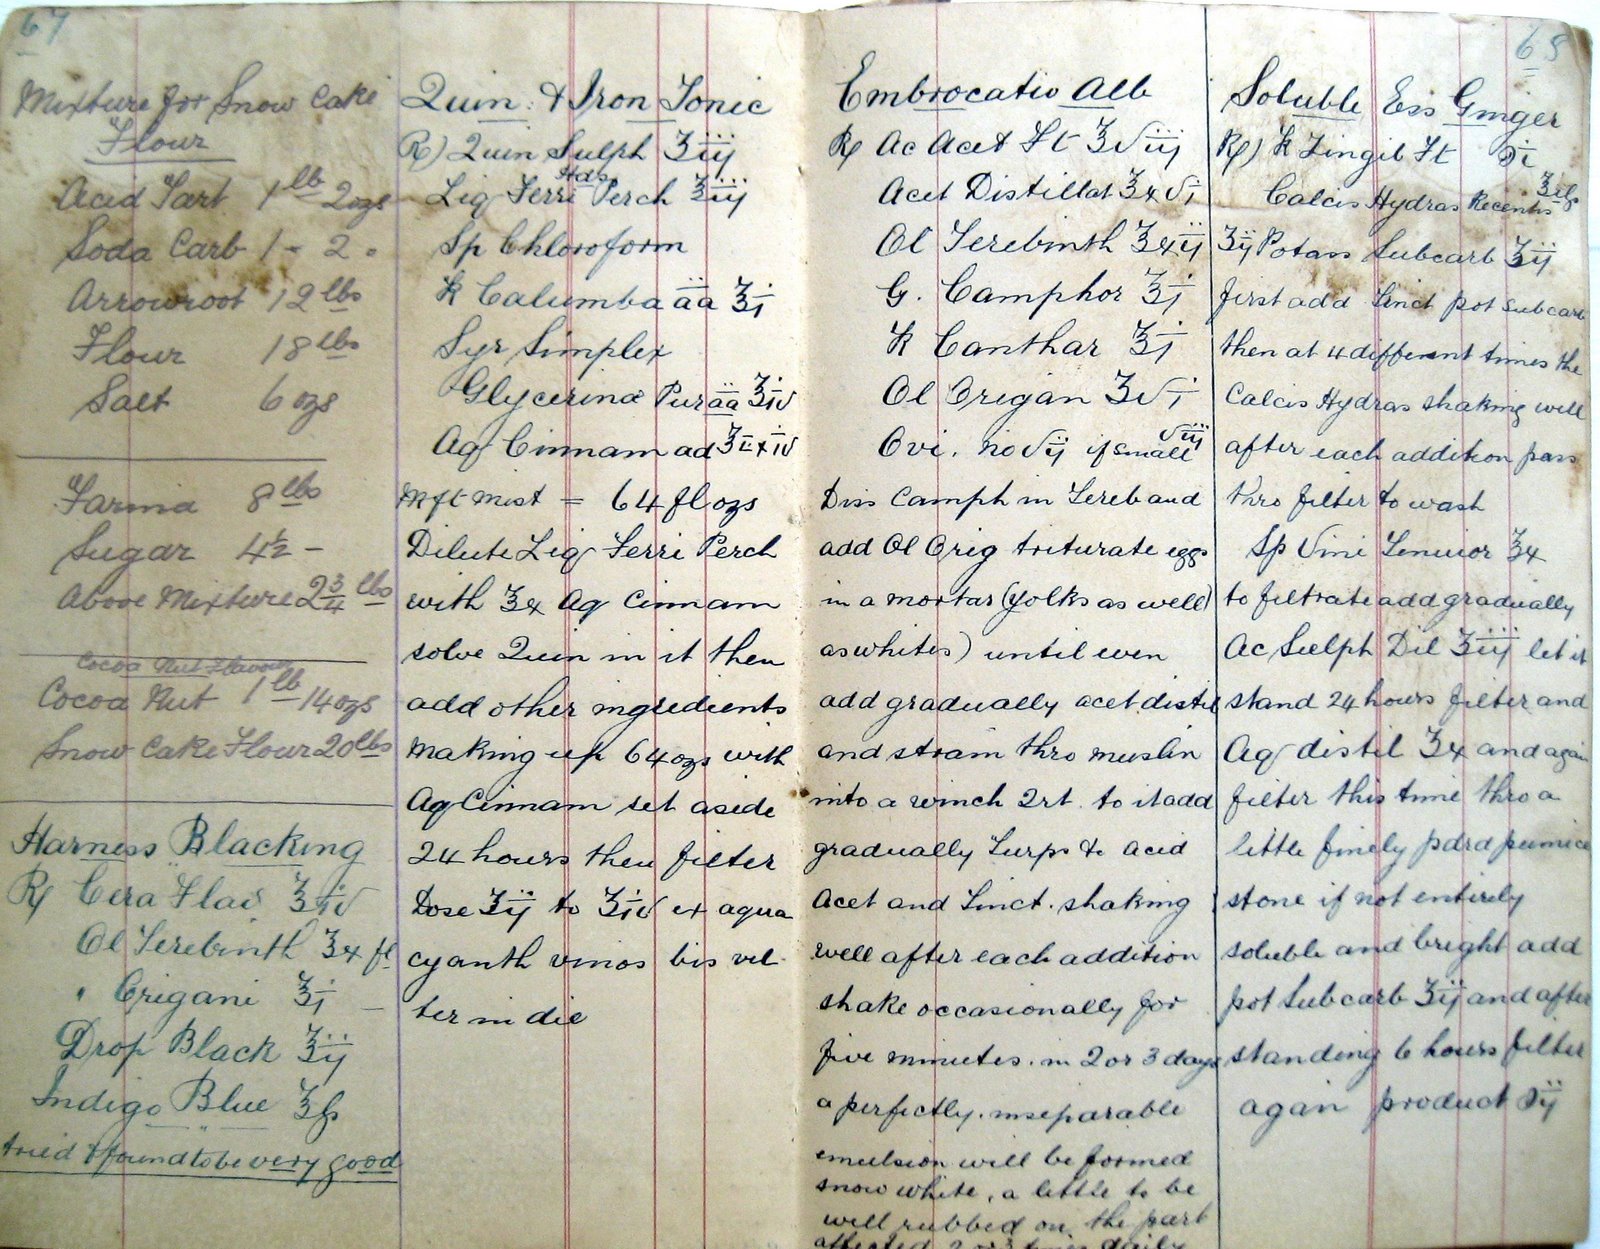 67
Mixture for Snow Cake
Flour
Acid Tart 1 lb 2 ozs
Soda Carb 1 - 2 "
Arrowroot 12 lbs
Flour 18 lbs
Salt 6 ozs
Farina 8 lbs
Sugar 4½ -
Above Mixture 2¾ lbs
Cocoa Nut Flavour
Cocoa Nut 1 lb 14 ozs
Snow Cake Flour 20 lbs
Harness Blacking
℞ Cera Flav ℥iv
Ol Terebinth ℥x fl
" Origani ℥i
Drop Black ℥ij
Indigo Blue ℥ß
tried & found to be very good
Quin. & Iron Tonic
℞) Quin Sulph ʒiij
Liq Ferri Perch ℥iij
Sp Chloroform
℞ Calumba āā ℥i
Syr Simplex
Glycerina Pur āā ℥iv
Aq Cinnam ad
Mft Mist = 64 fl ozs
Dilute Liq Ferri Perch
with ℥x Aq Cinnam
solve Quin in it then
add other ingredients
making up 64 ozs with
Aq Cinnam set aside
24 hours then filter
Dose ʒij to ʒiv ex aqua
cyanth vinos bis vel
ter in die
68
Embrocatio Alb
℞ Ac Acet Ft ℥viij
Acet Distillat ℥xvi
Ol Terebinth ℥xij
G. Camphor ℥i
℞ Canthar ℥i
Ol Origan ʒvi
Ovi. no vij if small viij
Diss Camph in Tereb and
add Ol Orig triturate eggs
in a mortar (yolks as well
as whites) until even
add gradually acet distil
and strain thro muslin
into a winch 2rt. to it add
gradually Turps & acid
Acet and Tinct. shaking
well after each addition
shake occasionally for
five minutes. in 2 or 3 days
a perfectly. inseparable
emulsion will be formed
snow white, a little to be
well rubbed on the part
affected 2 or 3 times daily
Soluble Ess Ginger
℞) ℞ Zingib Ft Oi
Calcis Hydras Recentis
℥ij Potass Subcarb ʒij
first add Tinct pot subcarb
then at 4 different times the
Calcis Hydras shaking well
after each addition pass
thro filter to wash
Sp Vini Tenuior ℥x
to filtrate add gradually
Ac Sulph Dil ʒiij let it
stand 24 hours filter and
Aq distil ℥x and again
filter this time thro a
little finely pdrd pumice
stone if not entirely
soluble and bright add
pot Subcarb ʒij and after
standing 6 hours filter
again product Oij